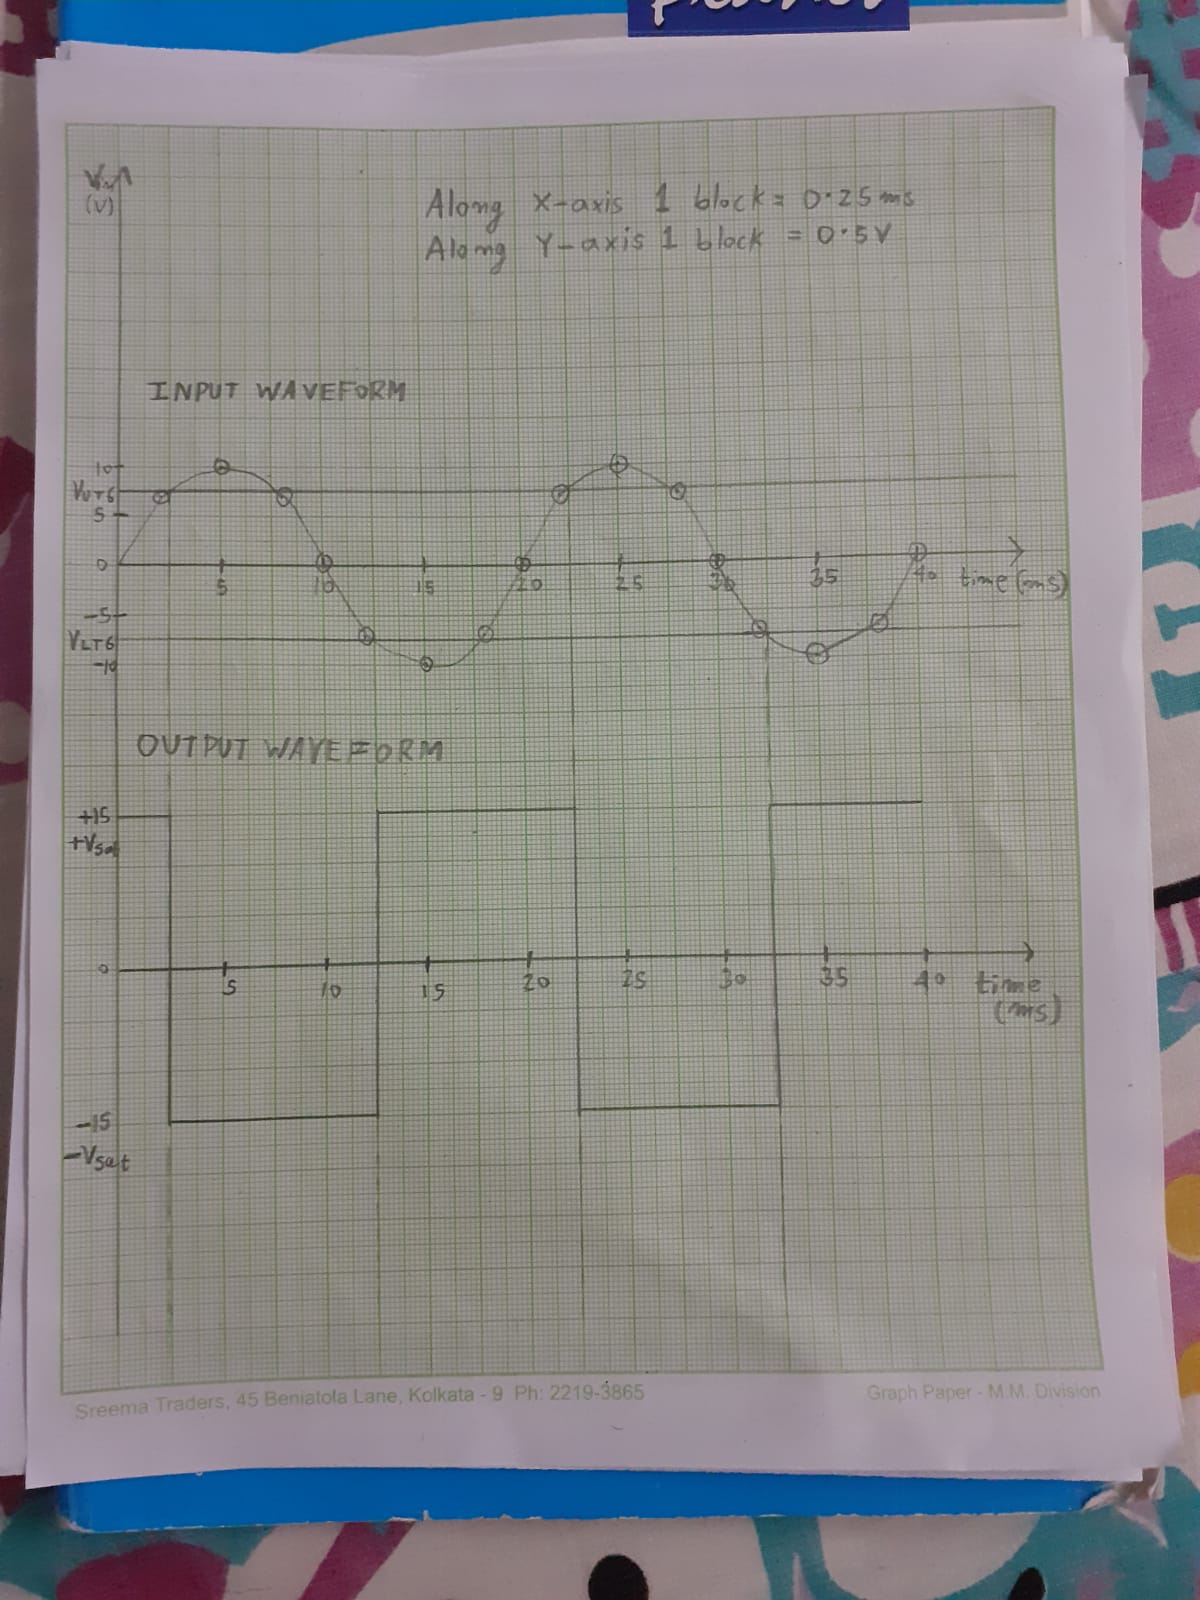 Vin
(V)
Along X-axis 1 block = 0.25 ms
Along Y-axis 1 block = 0.5V
INPUT WAVEFORM
10
VUTG
5
0
5 10 15 20 25 30 35 40 time (ms)
-5
VLTG
-10
OUTPUT WAVEFORM
+15
+Vsat
0
5 10 15 20 25 30 35 40 time
(ms)
-15
-Vsat
Sreema Traders, 45 Beniatola Lane, Kolkata - 9 Ph: 2219-3865
Graph Paper - M.M. Division